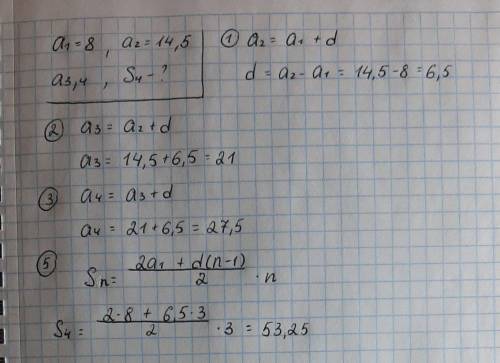 a₁ = 8 , a₂ = 14,5
a₃,₄ , S₄ - ?
① a₂ = a₁ + d
d = a₂ - a₁ = 14,5 - 8 = 6,5
② a₃ = a₂ + d
a₃ = 14,5 + 6,5 = 21
③ a₄ = a₃ + d
a₄ = 21 + 6,5 = 27,5
⑤ Sₙ = (2a₁ + d(n-1))/2 · n
S₄ = (2·8 + 6,5·3)/2 · 3 = 53,25